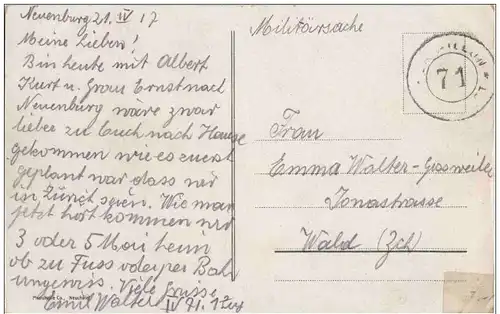 Neuenburg 21. IV 17
Meine Lieben!
Bin heute mit Albert
Kurt u. Frau Ernst nach
Neuenburg wäre zwar
lieber zu Euch nach Hause
gekommen wie es zuerst
geplant war dass wir
in Zürich seien. Wie man
jetzt hört kommen wir
3 oder 5 Mai heim
ob zu Fuss oder per Bah
ungewis. Viele Grüsse
Emil Walter IV 71.
Militärsache
71
Frau
Emma Walter-Gessweiler
Jonastrasse
Wald (Zch)